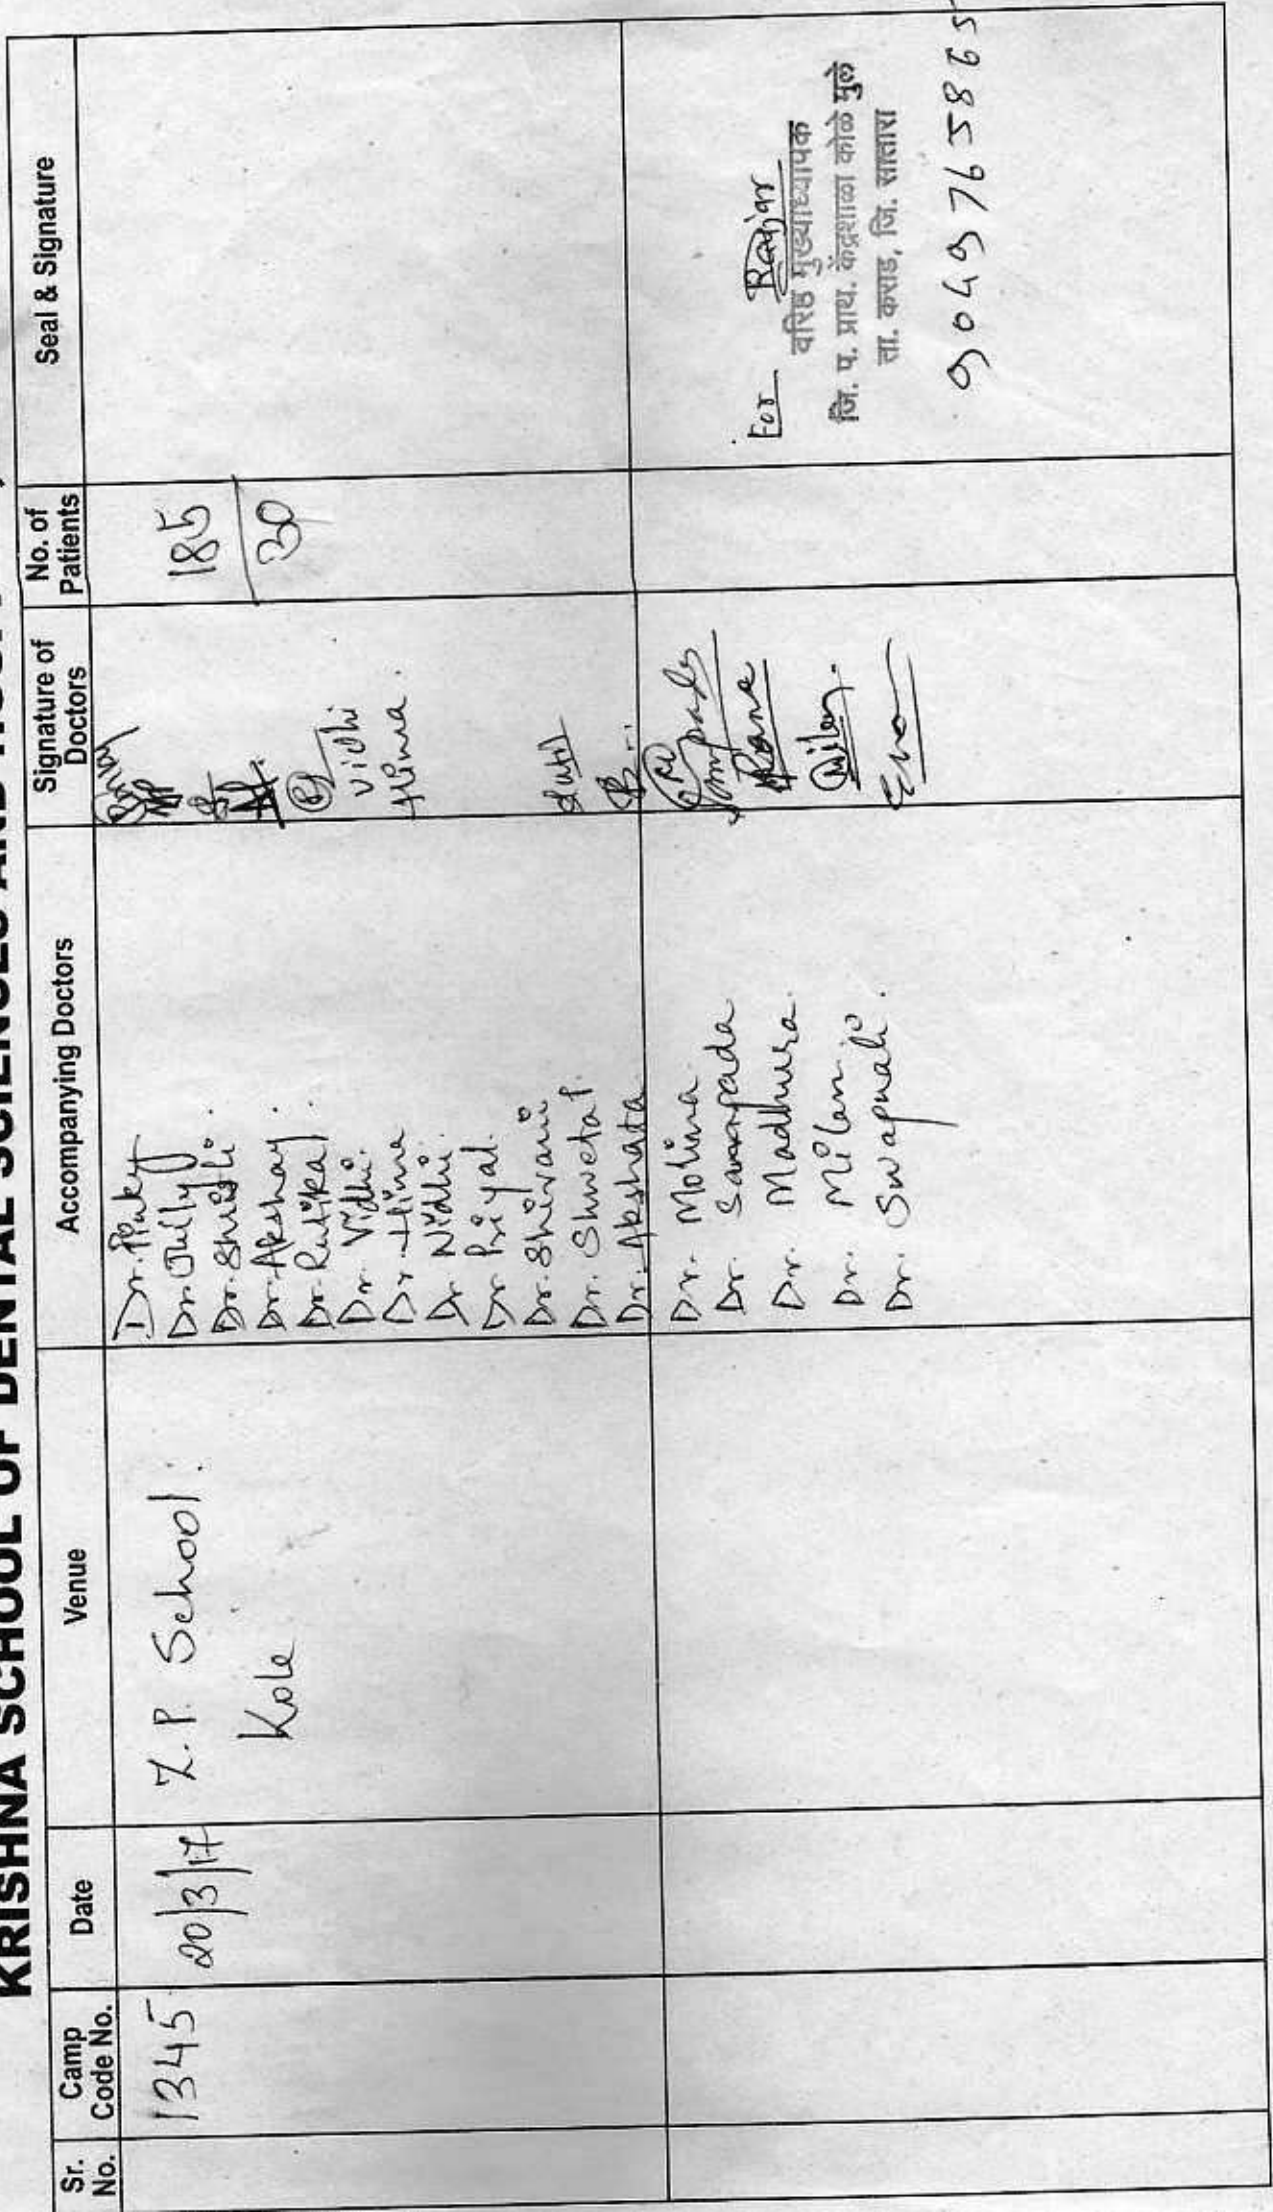 KRISHNA SCHOOL OF DENTAL SCIENCES AND
Sr. No.
Camp Code No.
Date
Venue
Accompanying Doctors
Signature of Doctors
No. of Patients
Seal & Signature
1345
20/3/17
Z.P. School.
Kole
Dr. Pinky
Dr. Juily
Dr. Shrishti.
Dr. Akshay.
Dr. Rutika.
Dr. Vidhi.
Dr. Hina
Dr Nidhi.
Dr Priyal.
Dr. Shivani
Dr. Shweta P.
Dr. Akshata
Vidhi
Hina.
Patil
185
30
Dr. Molina
Dr. Sampada
Dr. Madhura.
Dr. Milan.
Dr. Swapnali.
Sampada
For
वरिष्ठ मुख्याध्यापक
जि. प. प्राथ. केंद्रशाळा कोळे मुले
ता. कराड, जि. सातारा
9049765865